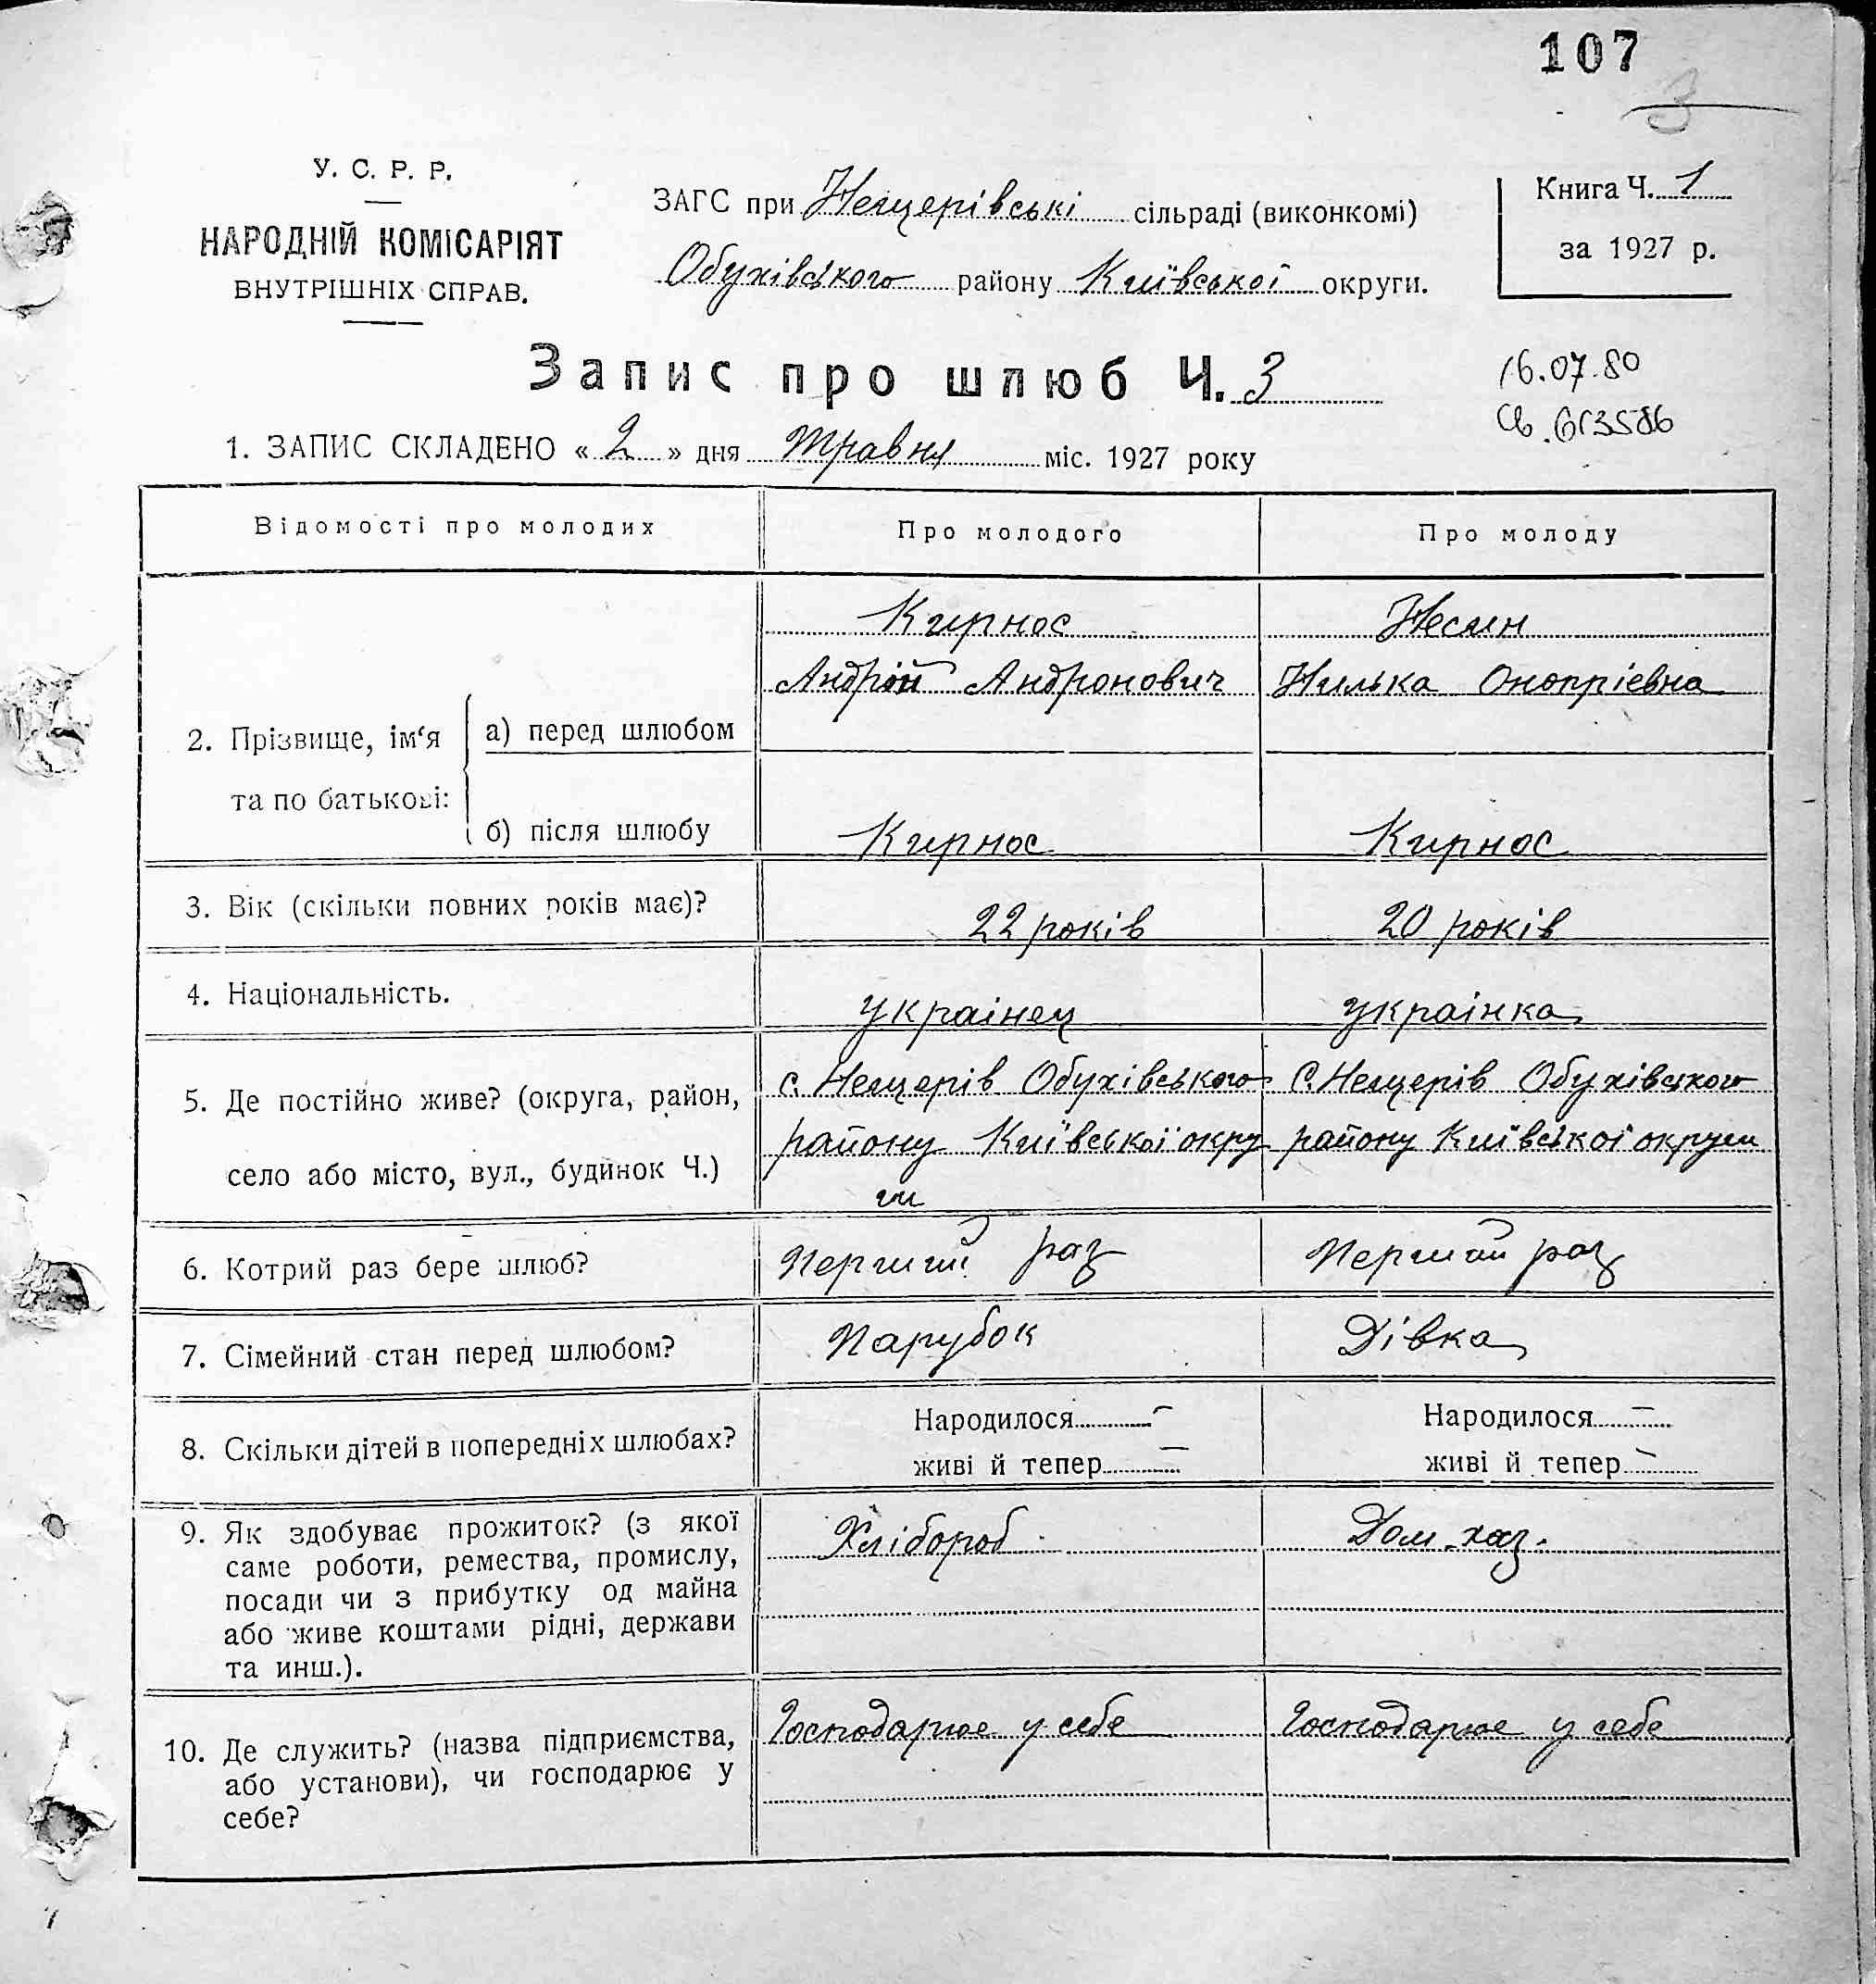 107
3
У. С. Р. Р.
НАРОДНІЙ КОМІСАРІЯТ
ВНУТРІШНІХ СПРАВ.
ЗАГС при Нещерівські сільраді (виконкомі)
Обухівського району Київської округи.
Книга Ч. 1
за 1927 р.
Запис про шлюб Ч. 3
16.07.80
Св. 613586
1. ЗАПИС СКЛАДЕНО « 2 » дня Травня міс. 1927 року
Відомості про молодих
Про молодого
Про молоду
2. Прізвище, ім‘я
та по батькові:
а) перед шлюбом
Кирнос
Андрій Андронович
Несин
Килька Оноприєвна
б) після шлюбу
Кирнос
Кирнос
3. Вік (скільки повних років має)?
22 років
20 років
4. Національність.
украінец
украінка
5. Де постійно живе? (округа, район,
село або місто, вул., будинок Ч.)
с. Нещерів Обухівського
району Київської окру
ги
С. Нещерів Обухівского
району Київської округи
6. Котрий раз бере шлюб?
Перший раз
Перший раз
7. Сімейний стан перед шлюбом?
Парубок
Дівка
8. Скільки дітей в попередніх шлюбах?
Народилося —
живі й тепер —
Народилося —
живі й тепер —
9. Як здобуває прожиток? (з якої
саме роботи, ремества, промислу,
посади чи з прибутку од майна
або живе коштами рідні, держави
та инш.).
Хлібороб
Дом. хаз.
10. Де служить? (назва підприємства,
або установи), чи господарює у
себе?
Господарює у себе
Господарює у себе